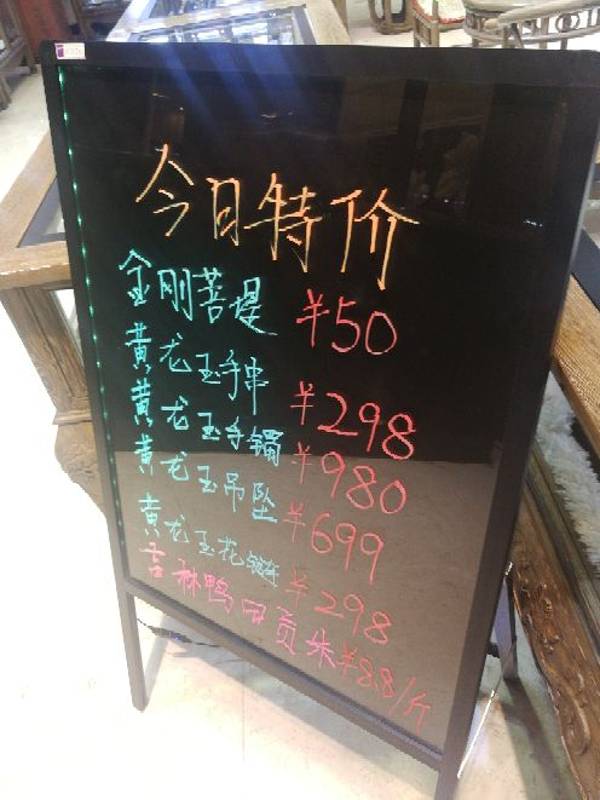 今日特价
金刚菩提 ¥50
黄龙玉手串 ¥298
黄龙玉手镯 ¥980
黄龙玉吊坠 ¥699
黄龙玉花链 ¥298
吉林鸭田贡米 ¥8.8/斤